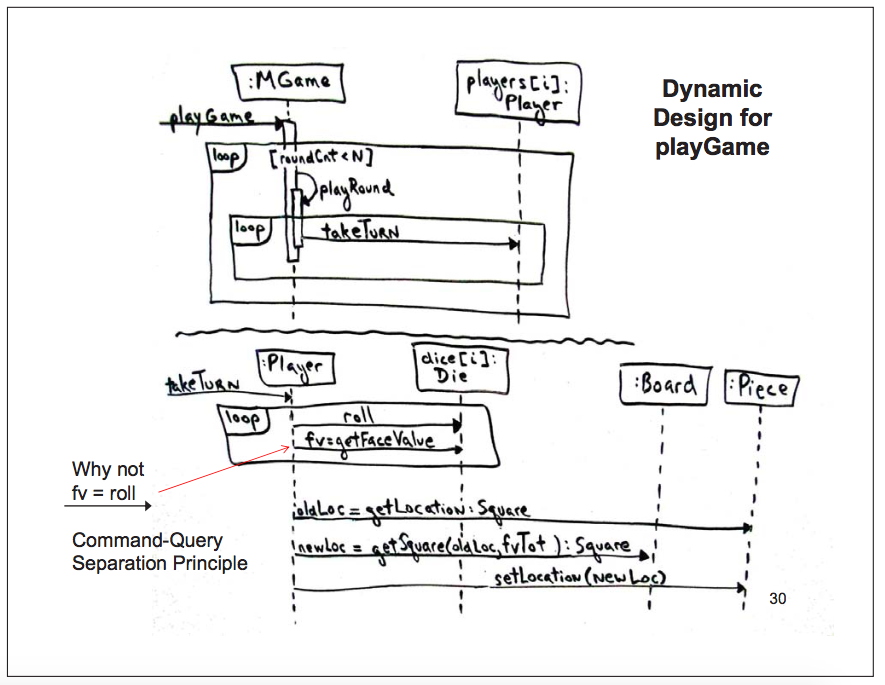 :MGame
players[i]:
Player
Dynamic
Design for
playGame
playGame
loop
[roundCnt < N]
playRound
loop
takeTURN
:Player
dice[i]:
Die
:Board
:Piece
takeTURN
loop
roll
fv=getFaceValue
Why not
fv = roll
oldLoc = getLocation: Square
Command-Query
Separation Principle
newLoc = getSquare(oldLoc, fvTot): Square
setLocation(NewLoc)
30